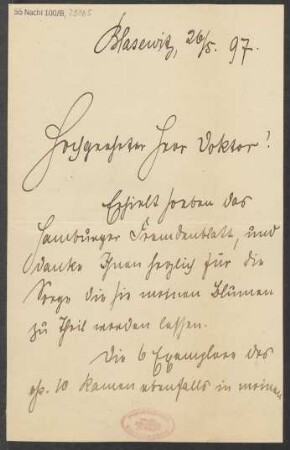 55 Nachl 100/B,
Blasewitz, 26/5. 97.
Hochgeehrter Herr Doktor!
Erhielt soeben das
Hamburger Fremdenblatt, und
danke Ihnen herzlich für die
Sorge die sie meinen Blumen
zu Theil werden lassen.
Die 6 Exemplare des
op. 10 kamen ebenfalls in meinen